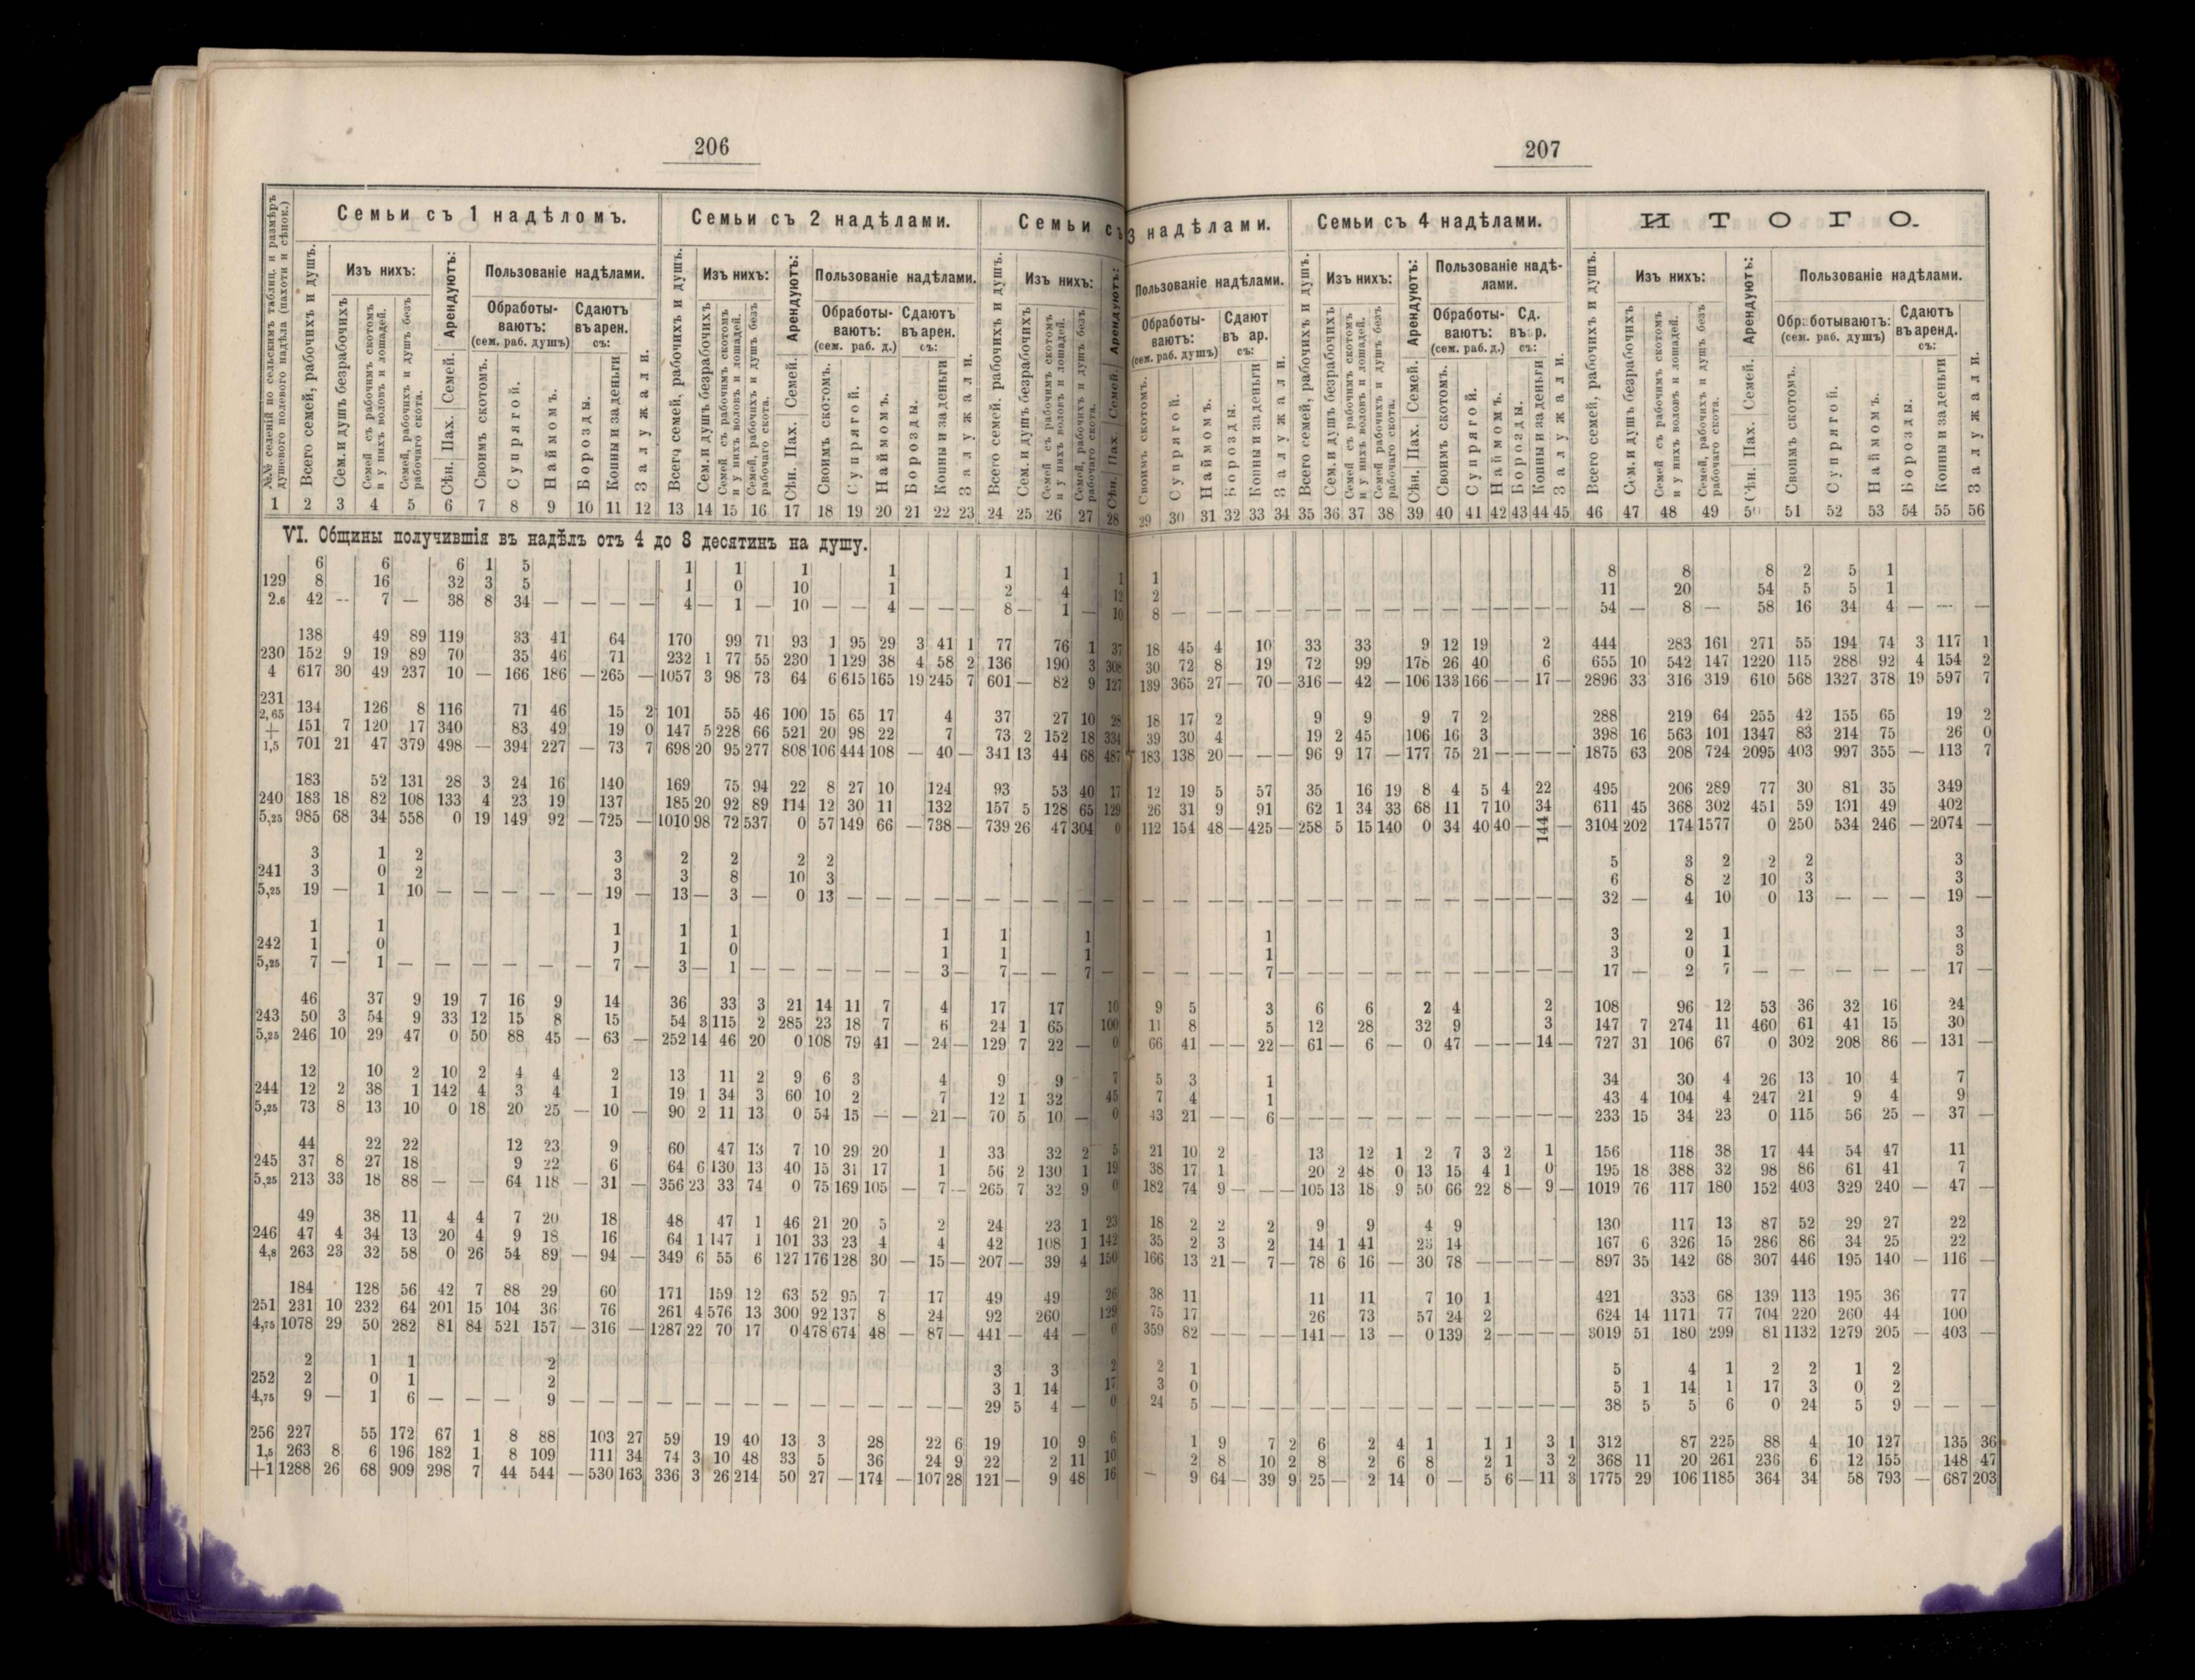 206
207
Семьи съ 1 надѣломъ.
Семьи съ 2 надѣлами.
Семьи съ 3 надѣлами.
Семьи съ 4 надѣлами.
ИТОГО.
№№ селеній по сельскимъ таблиц. и размѣръ душевого полевого надѣла (пахоти и сѣнок.)
Всего семей, рабочихъ и душъ.
Изъ нихъ:
Сем. и душъ безрабочихъ
Семей съ рабочимъ скотомъ и у нихъ воловъ и лошадей.
Семей, рабочихъ и душъ безъ рабочаго скота.
Арендуютъ:
Сѣн. Пах. Семей.
Пользованіе надѣлами.
Обработываютъ:
(сем. раб. душъ)
Своимъ скотомъ.
Супрягой.
Наймомъ.
Сдаютъ въ арен. съ:
Борозды.
Копны и за деньги
Залужали.
1 2 3 4 5 6 7 8 9 10 11 12 13 14 15 16 17 18 19 20 21 22 23 24 25 26 27 28 29 30 31 32 33 34 35 36 37 38 39 40 41 42 43 44 45 46 47 48 49 50 51 52 53 54 55 56
VI. Общины получившія въ надѣлъ отъ 4 до 8 десятинъ на душу.
6 6 6 1 5 1 1 1 1 1 1 1 1 8 8 8 2 5 1
129 8 16 32 3 5 1 0 10 1 2 4 12 2 11 20 54 5 5 1
2.6 42 — 7 — 38 8 34 — — — — 4 — 1 — 10 — — 4 — — — 8 — 1 — 10 8 — — — — — — — — — — — — — — — — 54 — 8 — 58 16 34 4 — — —
138 49 89 119 33 41 64 170 99 71 93 1 95 29 3 41 1 77 76 1 37 18 45 4 10 33 33 9 12 19 2 444 283 161 271 55 194 74 3 117 1
230 152 9 19 89 70 35 46 71 232 1 77 55 230 1 129 38 4 58 2 136 190 3 308 30 72 8 19 72 99 178 26 40 6 655 10 542 147 1220 115 288 92 4 154 2
4 617 30 49 237 10 — 166 186 — 265 — 1057 3 98 73 64 6 615 165 19 245 7 601 — 82 9 127 139 365 27 — 70 — 316 — 42 — 106 133 166 — — 17 — 2896 33 316 319 610 568 1327 378 19 597 7
231
2,65 134 126 8 116 71 46 15 2 101 55 46 100 15 65 17 4 37 27 10 28 18 17 2 9 9 9 7 2 288 219 64 255 42 155 65 19 2
+ 151 7 120 17 340 83 49 19 0 147 5 228 66 521 20 98 22 7 73 2 152 18 334 39 30 4 19 2 45 106 16 3 398 16 563 101 1347 83 214 75 26 0
1,5 701 21 47 379 498 — 394 227 — 73 7 698 20 95 277 808 106 444 108 — 40 — 341 13 44 68 487 183 138 20 — — — 96 9 17 — 177 75 21 — — — — 1875 63 208 724 2095 403 997 355 — 113 7
183 52 131 28 3 24 16 140 169 75 94 22 8 27 10 124 93 53 40 17 12 19 5 57 35 16 19 8 4 5 4 22 495 206 289 77 30 81 35 349
240 183 18 82 108 133 4 23 19 137 185 20 92 89 114 12 30 11 132 157 5 128 65 129 26 31 9 91 62 1 34 33 68 11 7 10 34 611 45 368 302 451 59 101 49 402
5,25 985 68 34 558 0 19 149 92 — 725 — 1010 98 72 537 0 57 149 66 — 738 — 739 26 47 304 0 112 154 48 — 425 — 258 5 15 140 0 34 40 40 — 144 — 3104 202 174 1577 0 250 534 246 — 2074 —
3 1 2 3 2 2 2 2 5 3 2 2 2 3
241 3 0 2 3 3 8 10 3 6 8 2 10 3 3
5,25 19 — 1 10 — — — — — 19 — 13 — 3 — 0 13 — — — — — — — — — — — — — — — — — — — — — — — — — — — 32 — 4 10 0 13 — — — 19 —
1 1 1 1 1 1 1 1 1 3 2 1 3
242 1 0 1 1 0 1 1 1 1 3 0 1 3
5,25 7 — 1 — — — — — — 7 — 3 — 1 — — — — — — 3 — 7 — — 7 — — — — — 7 — — — — — — — — — — — — 17 — 2 7 — — — — — 17 —
46 37 9 19 7 16 9 14 36 33 3 21 14 11 7 4 17 17 10 9 5 3 6 6 2 4 2 108 96 12 53 36 32 16 24
243 50 3 54 9 33 12 15 8 15 54 3 115 2 285 23 18 7 6 24 1 65 100 11 8 5 12 28 32 9 3 147 7 274 11 460 61 41 15 30
5,25 246 10 29 47 0 50 88 45 — 63 — 252 14 46 20 0 108 79 41 — 24 — 129 7 22 — 0 66 41 — — 22 — 61 — 6 — 0 47 — — — 14 — 727 31 106 67 0 302 208 86 — 131 —
12 10 2 10 2 4 4 2 13 11 2 9 6 3 4 9 9 7 5 3 1 34 30 4 26 13 10 4 7
244 12 2 38 1 142 4 3 4 1 19 1 34 3 60 10 2 7 12 1 32 45 7 4 1 43 4 104 4 247 21 9 4 9
5,25 73 8 13 10 0 18 20 25 — 10 — 90 2 11 13 0 54 15 — — 21 — 70 5 10 — 0 43 21 — — 6 — — — — — — — — — — — — 233 15 34 23 0 115 56 25 — 37 —
44 22 22 12 23 9 60 47 13 7 10 29 20 1 33 32 2 5 21 10 2 13 12 1 2 7 3 2 1 156 118 38 17 44 54 47 11
245 37 8 27 18 9 22 6 64 6 130 13 40 15 31 17 1 56 2 130 1 19 38 17 1 20 2 48 0 13 15 4 1 0 195 18 388 32 98 86 61 41 7
5,25 213 33 18 88 — — 64 118 — 31 — 356 23 33 74 0 75 169 105 — 7 — 265 7 32 9 0 182 74 9 — — — 105 13 18 9 50 66 22 8 — 9 — 1019 76 117 180 152 403 329 240 — 47 —
49 38 11 4 4 7 20 18 48 47 1 46 21 20 5 2 24 23 1 23 18 2 2 2 9 9 4 9 130 117 13 87 52 29 27 22
246 47 4 34 13 20 4 9 18 16 64 1 147 1 101 33 23 4 4 42 108 1 142 35 2 3 2 14 1 41 23 14 167 6 326 15 286 86 34 25 22
4,8 263 23 32 58 0 26 54 89 — 94 — 349 6 55 6 127 176 128 30 — 15 — 207 — 39 4 150 166 13 21 — 7 — 78 6 16 — 30 78 — — — — — 897 35 142 68 307 446 195 140 — 116 —
184 128 56 42 7 88 29 60 171 159 12 63 52 95 7 17 49 49 26 38 11 11 11 7 10 1 421 353 68 139 113 195 36 77
251 231 10 232 64 201 15 104 36 76 261 4 576 13 300 92 137 8 24 92 260 129 75 17 26 73 57 24 2 624 14 1171 77 704 220 260 44 100
4,75 1078 29 50 282 81 84 521 157 — 316 — 1287 22 70 17 0 478 674 48 — 87 — 441 — 44 — 0 359 82 — — — — 141 — 13 — 0 139 2 — — — — 3019 51 180 299 81 1132 1279 205 — 403 —
2 1 1 2 3 3 2 2 1 5 4 1 2 2 1 2
252 2 0 1 2 3 1 14 17 3 0 5 1 14 1 17 3 0 2
4,75 9 — 1 6 — — — 9 — — — — — — — — — — — — — — 29 5 4 — 0 24 5 — — — — — — — — — — — — — — — 38 5 5 6 0 24 5 9 — — —
256 227 55 172 67 1 8 88 103 27 59 19 40 13 3 28 22 6 19 10 9 6 1 9 7 2 6 2 4 1 1 1 3 1 312 87 225 88 4 10 127 135 36
1,5 263 8 6 196 182 1 8 109 111 34 74 3 10 48 33 5 36 24 9 22 2 11 10 2 8 10 2 8 2 6 8 2 1 3 2 368 11 20 261 236 6 12 155 148 47
+1 1288 26 68 909 298 7 44 544 — 530 163 336 3 26 214 50 27 — 174 — 107 28 121 — 9 48 16 — 9 64 — 39 9 25 — 2 14 0 — 5 6 — 11 3 1775 29 106 1185 364 34 58 793 — 687 203